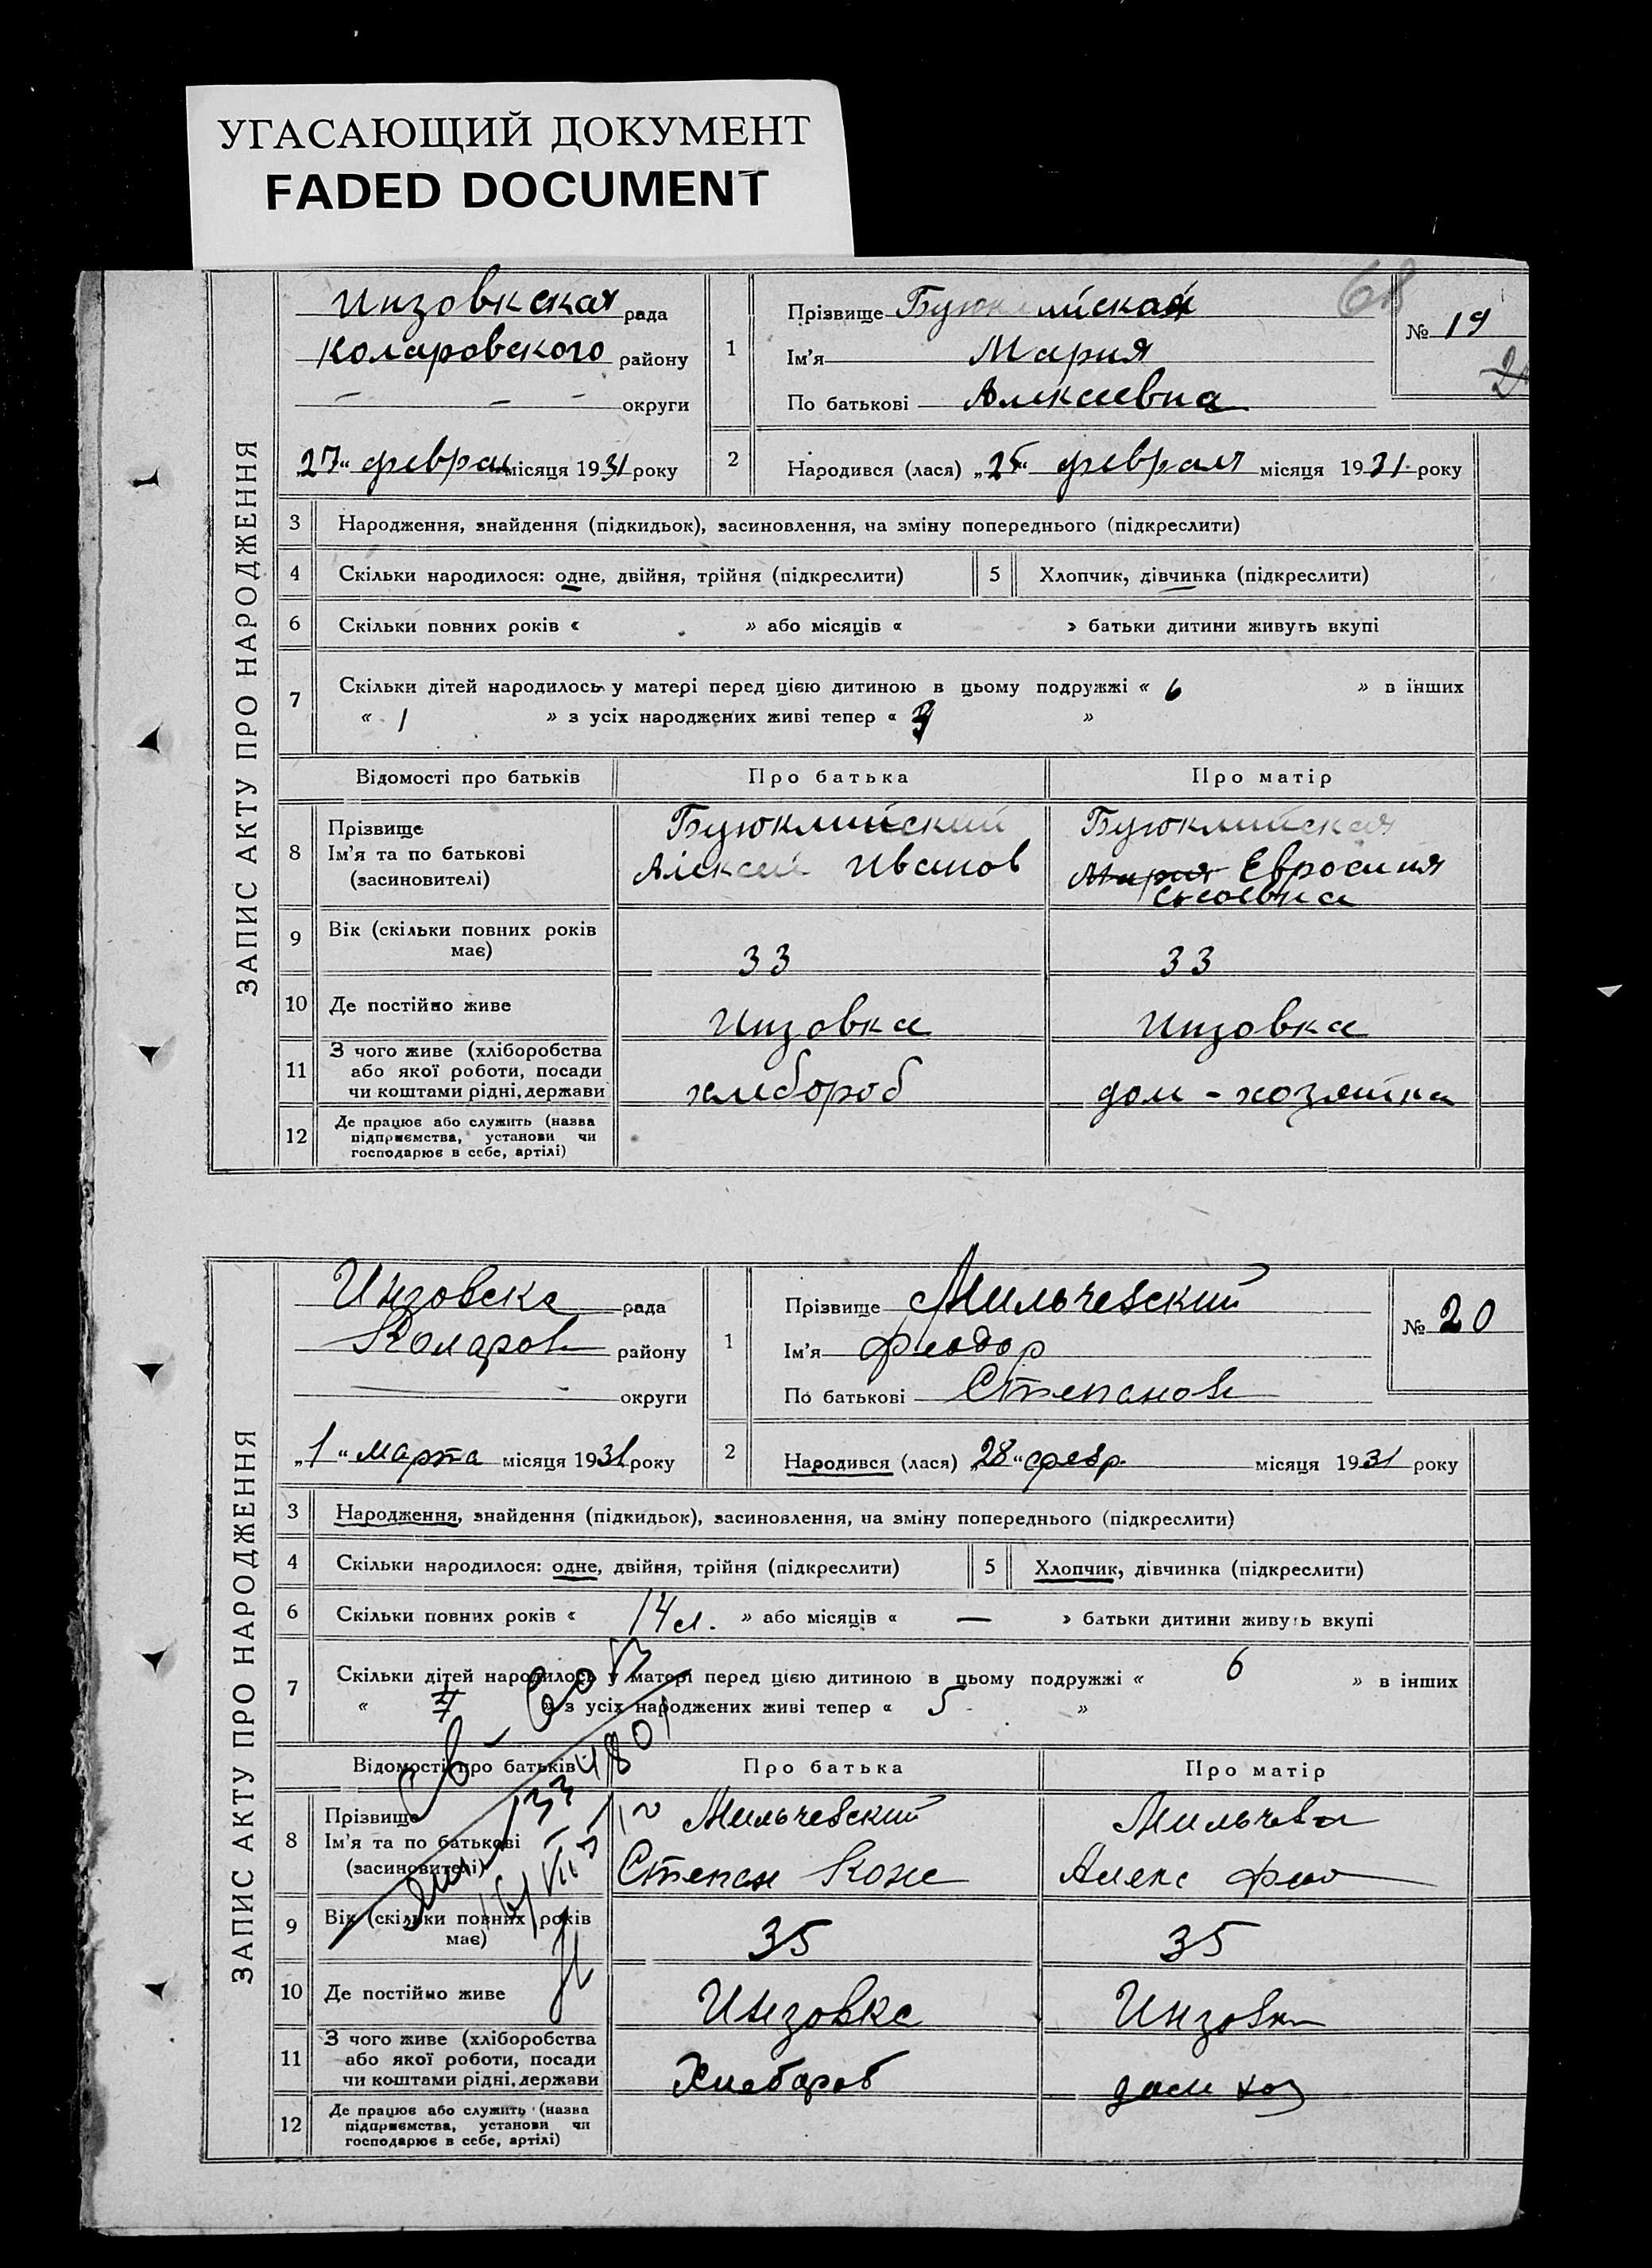 УГАСАЮЩИЙ ДОКУМЕНТ
FADED DOCUMENT
68
ЗАПИС АКТУ ПРО НАРОДЖЕННЯ
Инзовкская рада
Коларовского району
— — — округи
„27“ феврал місяця 1931 року
1
Прізвище Буюклийская
Ім'я Мария
По батькові Алексеевна
№ 19
2
Народився (лася) „25“ февраля місяця 1931 року
3 Народження, знайдення (підкидьок), засиновлення, на зміну попереднього (підкреслити)
4 Скільки народилося: одне, двійня, трійня (підкреслити)
5 Хлопчик, дівчинка (підкреслити)
6 Скільки повних років « » або місяців « » батьки дитини живуть вкупі
7 Скільки дітей народилось у матері перед цією дитиною в цьому подружжі « 6 » в інших
« 1 » з усіх народжених живі тепер « »
Відомості про батьків Про батька Про матір
8 Прізвище
Ім'я та по батькові
(засиновителі)
Буюклийский
Алексей Иванов
Буюклийская
Мария Евросиния
9 Вік (скільки повних років
має)
33 33
10 Де постійно живе Инзовка Инзовка
11 З чого живе (хліборобства
або якої роботи, посади
чи коштами рідні, держави
хлебороб дом - хозяйка
12 Де працює або служить (назва
підприємства, установи чи
господарює в себе, артілі)
ЗАПИС АКТУ ПРО НАРОДЖЕННЯ
Инзовска рада
Коларов району
— округи
„1“ марта місяця 1931 року
1
Прізвище Мильчевский
Ім'я Феодор
По батькові Степанов
№ 20
2
Народився (лася) „28“ февр. місяця 1931 року
3 Народження, знайдення (підкидьок), засиновлення, на зміну попереднього (підкреслити)
4 Скільки народилося: одне, двійня, трійня (підкреслити)
5 Хлопчик, дівчинка (підкреслити)
6 Скільки повних років « 14 л. » або місяців « — » батьки дитини живуть вкупі
7 Скільки дітей народилось у матері перед цією дитиною в цьому подружжі « 6 » в інших
« » з усіх народжених живі тепер « 5 »
Відомості про батьків Про батька Про матір
8 Прізвище
Ім'я та по батькові
(засиновителі)
Мильчевский
Степан
Мильчева
Алекс
9 Вік (скільки повних років
має)
35 35
10 Де постійно живе Инзовка Инзовк
11 З чого живе (хліборобства
або якої роботи, посади
чи коштами рідні, держави
Хлебороб дом хоз
12 Де працює або служить (назва
підприємства, установи чи
господарює в себе, артілі)